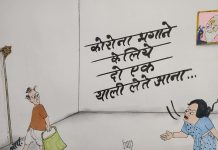 कोरोना भगाने
के लिये
दो एक
थाली लेते आना...